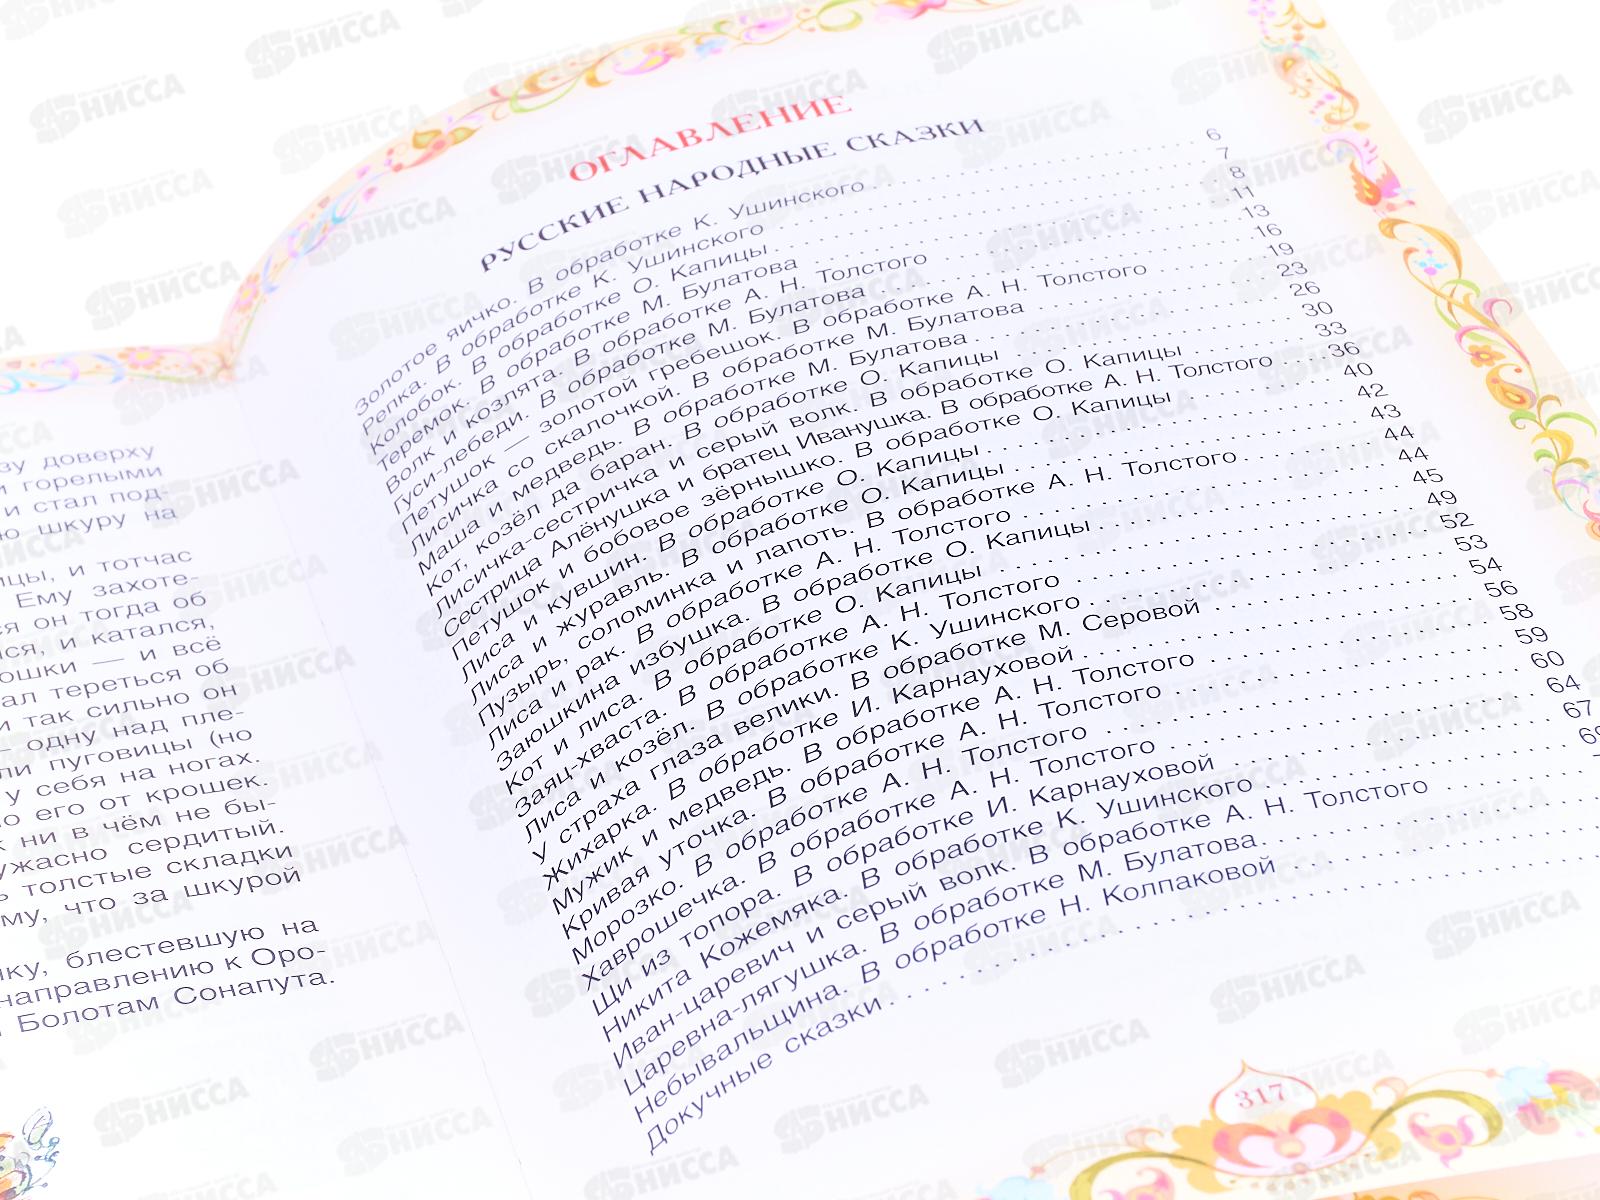 зу доверху
и горелыми
и стал под-
ю шкуру на
ицы, и тотчас
Ему захоте-
ся он тогда об
лся, и катался,
ошки — и всё
ал тереться об
и так сильно он
— одну над пле-
ли пуговицы (но
у себя на ногах.
о его от крошек.
к ни в чём не бы-
ужасно сердитый.
ь толстые складки
му, что за шкурой
ику, блестевшую на
направлению к Оро-
Болотам Сонапута.
ОГЛАВЛЕНИЕ
РУССКИЕ НАРОДНЫЕ СКАЗКИ
Золотое яичко. В обработке К. Ушинского 6
Репка. В обработке К. Ушинского 7
Колобок. В обработке О. Капицы 8
Теремок. В обработке М. Булатова 11
Волк и козлята. В обработке А. Н. Толстого 13
Гуси-лебеди. В обработке М. Булатова 16
Петушок — золотой гребешок. В обработке А. Н. Толстого 19
Лисичка со скалочкой. В обработке М. Булатова 23
Маша и медведь. В обработке М. Булатова 26
Кот, козёл да баран. В обработке О. Капицы 30
Лисичка-сестричка и серый волк. В обработке О. Капицы 33
Сестрица Алёнушка и братец Иванушка. В обработке А. Н. Толстого 36
Петушок и бобовое зёрнышко. В обработке О. Капицы 40
Лиса и кувшин. В обработке О. Капицы 42
Лиса и журавль. В обработке О. Капицы 43
Пузырь, соломинка и лапоть. В обработке А. Н. Толстого 44
Лиса и рак. В обработке А. Н. Толстого 44
Заюшкина избушка. В обработке О. Капицы 45
Кот и лиса. В обработке О. Капицы 49
Заяц-хваста. В обработке А. Н. Толстого 52
Лиса и козёл. В обработке К. Ушинского 53
У страха глаза велики. В обработке М. Серовой 54
Жихарка. В обработке И. Карнауховой 56
Мужик и медведь. В обработке А. Н. Толстого 58
Кривая уточка. В обработке А. Н. Толстого 59
Морозко. В обработке А. Н. Толстого 60
Хаврошечка. В обработке А. Н. Толстого 64
Щи из топора. В обработке И. Карнауховой 67
Никита Кожемяка. В обработке К. Ушинского
Иван-царевич и серый волк. В обработке А. Н. Толстого
Царевна-лягушка. В обработке М. Булатова
Небывальщина. В обработке Н. Колпаковой
Докучные сказки
317